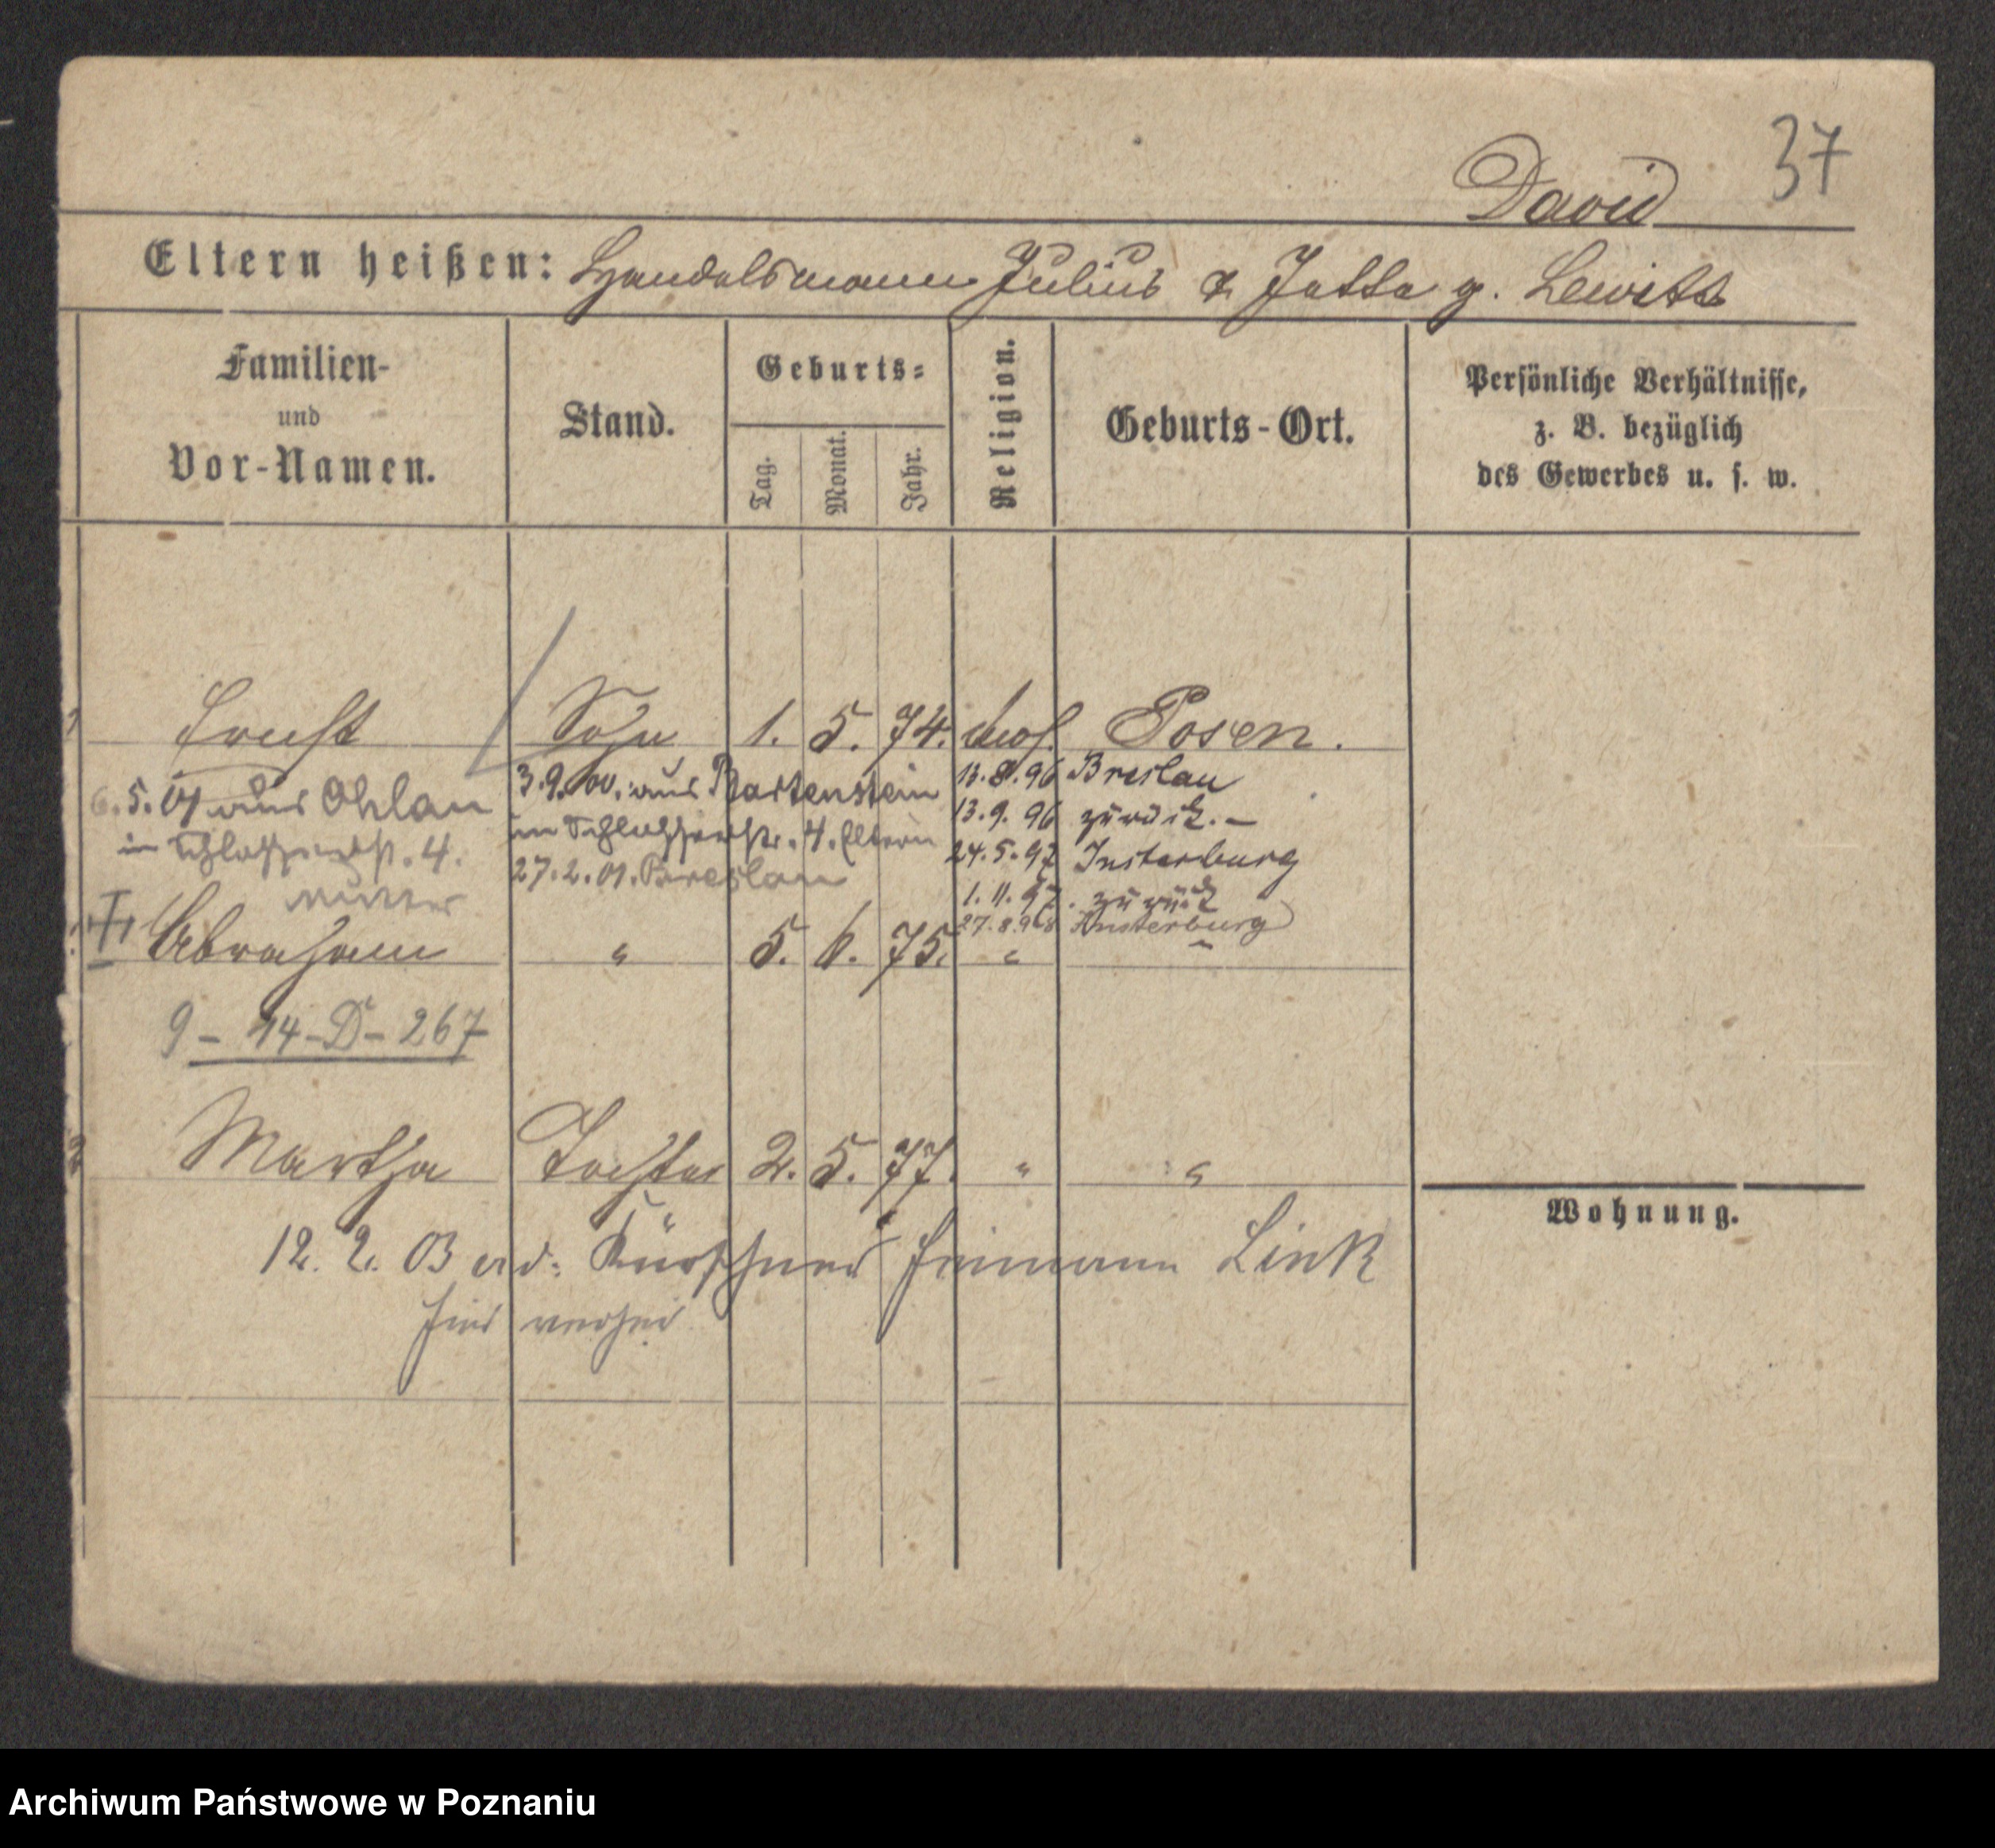 37
David
Eltern heißen: Handelsmann Julius & Jette g. Lewitt
Familien-
und
Vor-Namen.
Stand.
Geburts-
Tag.
Monat.
Jahr.
Religion.
Geburts-Ort.
Persönliche Verhältnisse,
z. B. bezüglich
des Gewerbes u. s. w.
Ernst Sohn 1. 5. 74. mos. Posen.
6.5.01 aus Ohlau
in Schlosserstr. 4.
Mutter
3.9.00. aus Bartenstein
in Schlosserstr. 4. Eltern
27.2.01. Breslau
13.8.96 Breslau
13.9.96 zurück. –
24.5.97 Insterburg
1.11.97. zurück
27.8.98 Insterburg
Abraham " 5. 6. 75. "
9 – 14 – D – 267
Martha Tochter 2. 5. 77. " "
12. 2. 03 Kürschner Link
Wohnung.
Archiwum Państwowe w Poznaniu